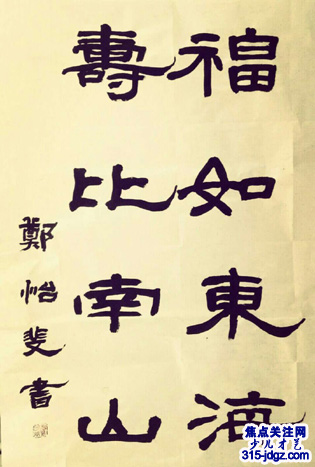 福如東海
壽比南山
鄭怡斐書
焦点关注网
少儿才艺
315-jdgz.com